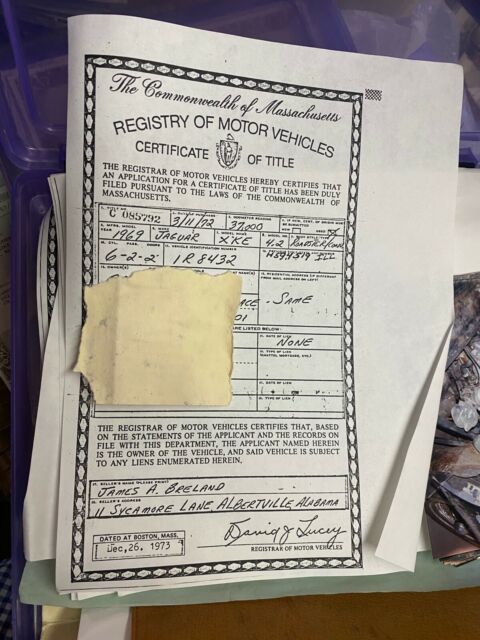 The Commonwealth of Massachusetts
REGISTRY OF MOTOR VEHICLES
CERTIFICATE OF TITLE
THE REGISTRAR OF MOTOR VEHICLES HEREBY CERTIFIES THAT
AN APPLICATION FOR A CERTIFICATE OF TITLE HAS BEEN DULY
FILED PURSUANT TO THE LAWS OF THE COMMONWEALTH OF
MASSACHUSETTS.
C 085792 3/11/73 ODOMETER READING 37000
1969 JAGUAR XKE 4.2
6-2-2 VEHICLE IDENTIFICATION NUMBER 1R8432
SAME
ARE LISTED BELOW:
DATE OF LIEN
NONE
TYPE OF LIEN
DATE OF LIEN
TYPE OF LIEN
THE REGISTRAR OF MOTOR VEHICLES CERTIFIES THAT, BASED
ON THE STATEMENTS OF THE APPLICANT AND THE RECORDS ON
FILE WITH THIS DEPARTMENT, THE APPLICANT NAMED HEREIN
IS THE OWNER OF THE VEHICLE, AND SAID VEHICLE IS SUBJECT
TO ANY LIENS ENUMERATED HEREIN.
SELLER'S NAME (PLEASE PRINT)
JAMES A. BRELAND
SELLER'S ADDRESS
11 SYCAMORE LANE, ALBERTVILLE, ALABAMA
David J Lucey
DATED AT BOSTON, MASS.
REGISTRAR OF MOTOR VEHICLES
Dec, 26, 1973